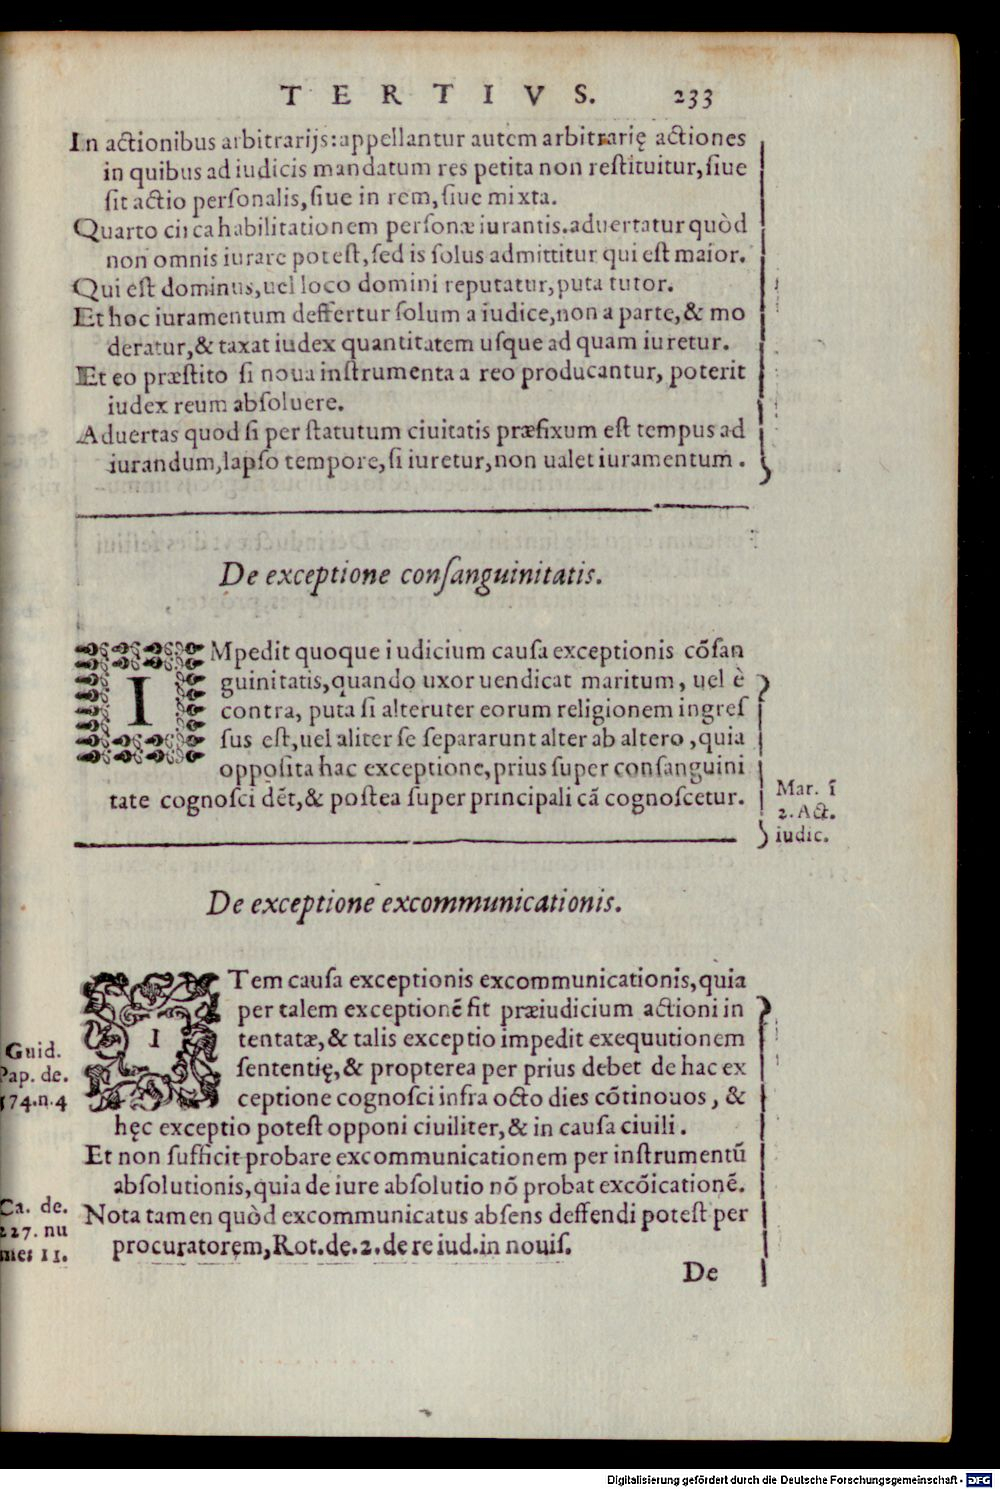 TERTIVS. 233
In actionibus arbitrarijs:appellantur autem arbitrarię actiones
in quibus ad iudicis mandatum res petita non restituitur,siue
sit actio personalis,siue in rem,siue mixta.
Quarto circa habilitationem personæ iurantis.aduertatur quòd
non omnis iurare potest,sed is solus admittitur qui est maior.
Qui est dominus,uel loco domini reputatur,puta tutor.
Et hoc iuramentum deffertur solum a iudice,non a parte,& mo
deratur,& taxat iudex quantitatem usque ad quam iuretur.
Et eo præstito si noua instrumenta a reo producantur, poterit
iudex reum absoluere.
Aduertas quod si per statutum ciuitatis præfixum est tempus ad
iurandum,lapso tempore,si iuretur,non ualet iuramentum.
De exceptione consanguinitatis.
IMpedit quoque iudicium causa exceptionis cõsan
guinitatis,quando uxor uendicat maritum, uel è
contra, puta si alteruter eorum religionem ingres
sus est,uel aliter se separarunt alter ab altero,quia
opposita hac exceptione,prius super consanguini
tate cognosci dẽt,& postea super principali cã cognoscetur.
Mar. ĩ
2. Act.
iudic.
De exceptione excommunicationis.
ITem causa exceptionis excommunicationis,quia
per talem exceptionẽ fit præiudicium actioni in
tentatæ,& talis exceptio impedit exequutionem
sententię,& propterea per prius debet de hac ex
ceptione cognosci infra octo dies cõtinouos, &
hęc exceptio potest opponi ciuiliter,& in causa ciuili.
Guid.
Pap. de.
574.n.4
Et non sufficit probare excommunicationem per instrumentũ
absolutionis,quia de iure absolutio nõ probat excõicationẽ.
Nota tamen quòd excommunicatus absens deffendi potest per
procuratorem,Rot.de.2.de re iud.in nouis.
Ca. de.
227. nu
mer 11.
De
Digitalisierung gefördert durch die Deutsche Forschungsgemeinschaft - DFG